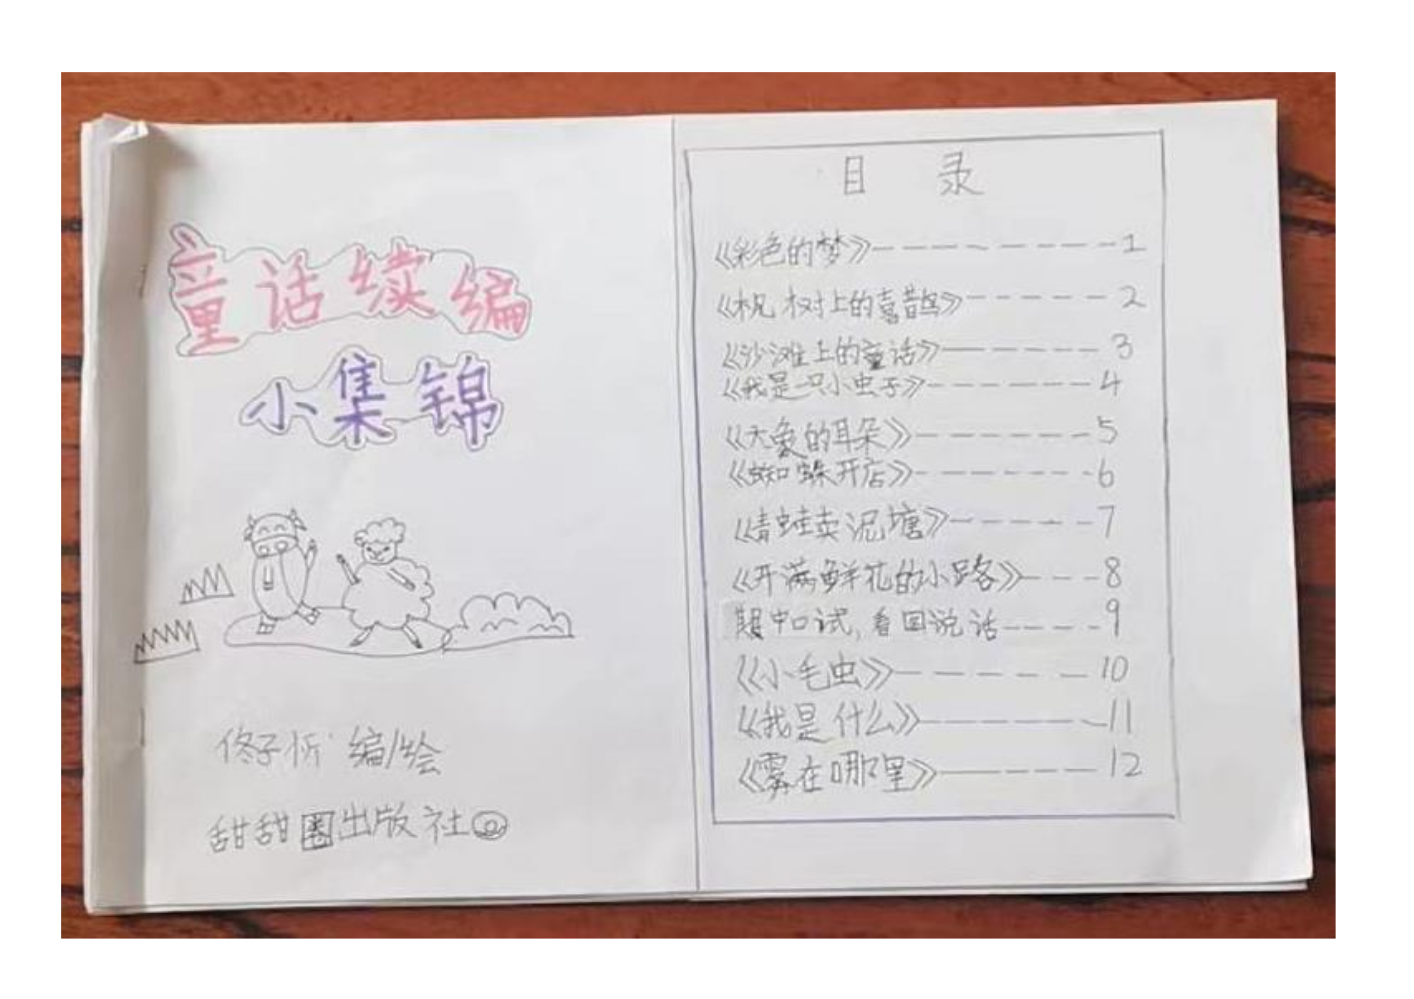 童话续编
小集锦
佟子忻 编/绘
甜甜圈出版社
目 录
《彩色的梦》---------1
《枫树上的喜鹊》------2
《沙滩上的童话》------3
《我是一只小虫子》------4
《大象的耳朵》------5
《蜘蛛开店》------6
《青蛙卖泥塘》-----7
《开满鲜花的小路》---8
期中口试,看图说话----9
《小毛虫》------10
《我是什么》------11
《雾在哪里》------12